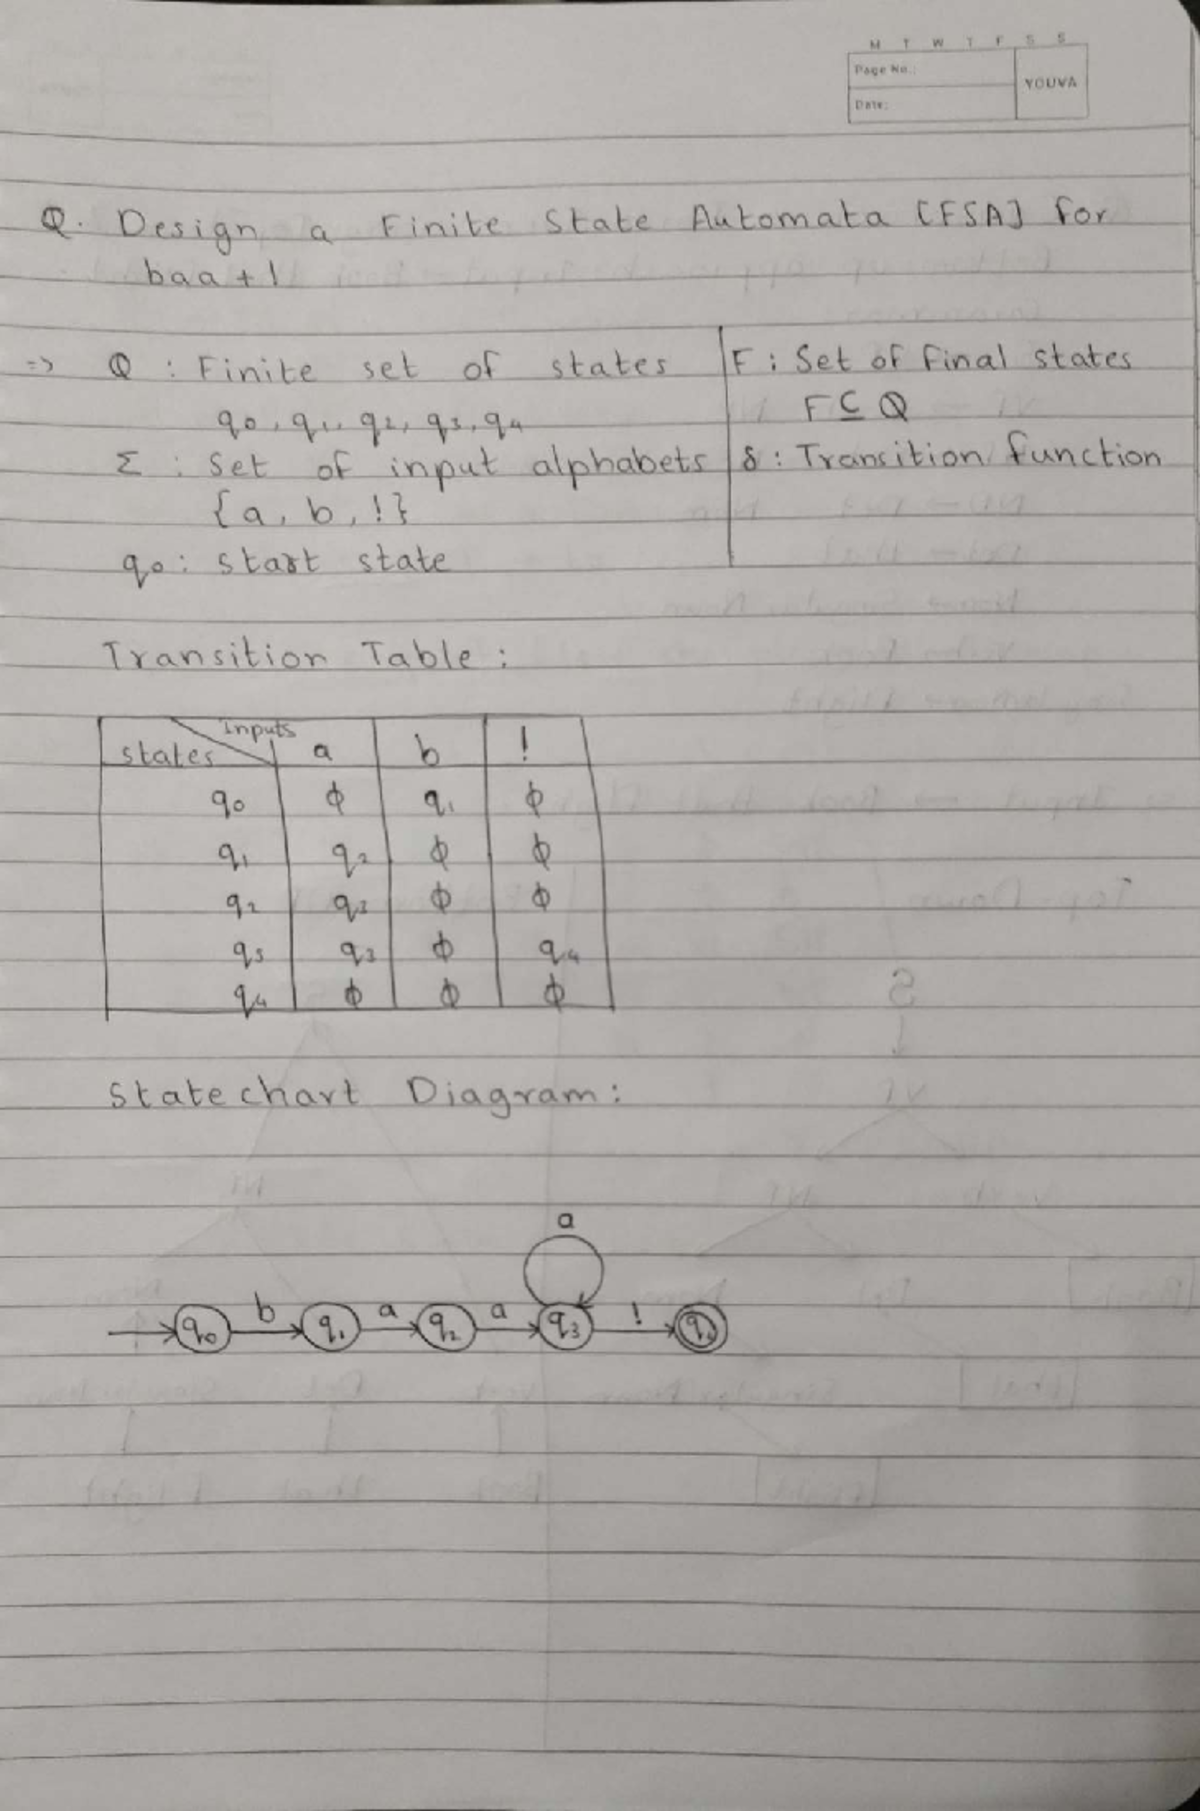 M T W T F S S
Page No.:
YOUVA
Date:
Q. Design a Finite State Automata [FSA] for
baa+!
=> Q : Finite set of states
q0, q1, q2, q3, q4
Σ : Set of input alphabets
{a, b, !}
q0 : start state
F : Set of Final states
F ⊆ Q
δ : Transition function
Transition Table :
states Inputs a b !
q0 ϕ q1 ϕ
q1 q2 ϕ ϕ
q2 q3 ϕ ϕ
q3 q3 ϕ q4
q4 ϕ ϕ ϕ
Statechart Diagram :
a
q0 b q1 a q2 a q3 ! q4